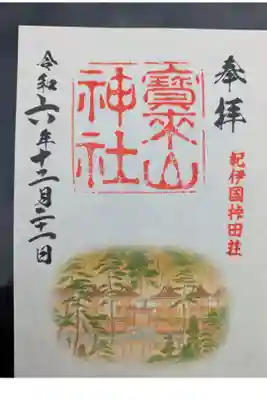 奉拝
紀伊国桛田荘
寶來山
神社
令和六年十二月二十一日